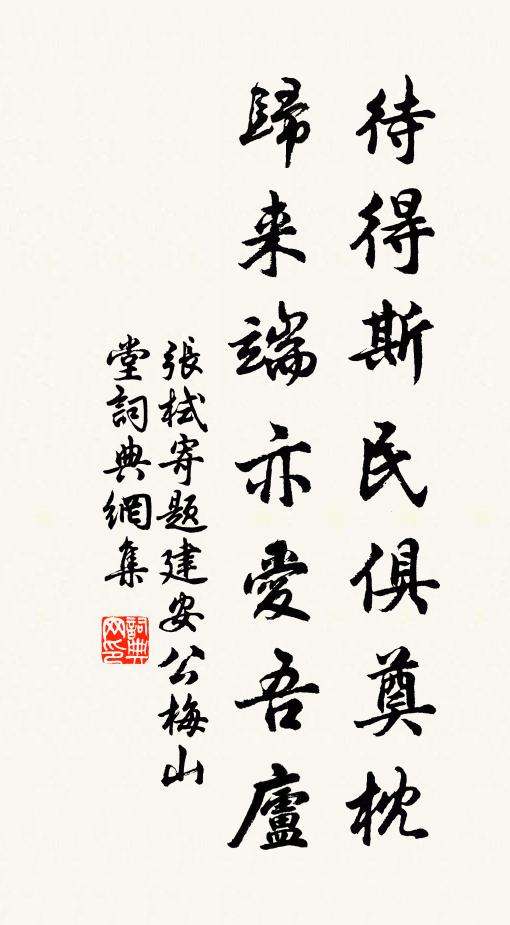 待得斯民俱奠枕
歸来端亦愛吾廬
張栻寄題建安公梅山
堂詞典網集
詞典
网印